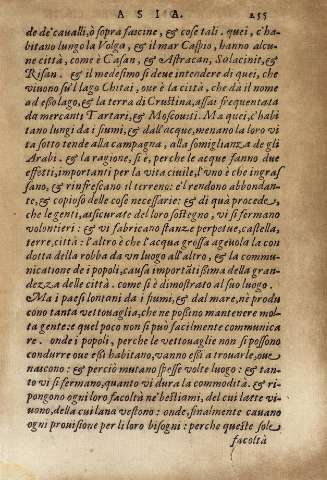 ASIA. 255
de de' caualli, ò sopra fascine, & cose tali. quei, c'ha-
bitano lungo la Volga, & il mar Caspio, hanno alcu-
ne città, come è Casan, & Astracan, Solacinit, &
Risan. & il medesimo si deue intendere di quei, che
viuono su'l lago Chitai, oue è la città, che dà il nome
ad esso lago, & la terra di Crustina, assai frequentata
da mercanti Tartari, & Moscouiti. Ma quei, c'habi
tano lungi da i fiumi, & dall'acque, menano la loro vi
ta sotto tende alla campagna, alla somiglianza de gli
Arabi. & la ragione, si è, perche le acque fanno due
effetti, importanti per la vita ciuile, l'vno è che ingras
sano, & rinfrescano il terreno: e'l rendono abbondan-
te, & copioso delle cose necessarie: & di quà procede,
che le genti, assicurate del loro sostegno, vi si fermano
volontieri: & vi fabricano stanze perpetue, castella,
terre, città: l'altro è che l'acqua grossa ageuola la con
dotta della robba da vn luogo all'altro, & la commu-
nicatione de i popoli, causa importātissima della gran-
dezza delle città. come si è dimostrato al suo luogo.
Ma i paesi lontani da i fiumi, & dal mare, nè produ
cono tanta vettouaglia, che ne possino mantenere mol
ta gente: et quel poco non si può facilmente communica
re. onde i popoli, perche le vettouaglie non si possono
condurre oue essi habitano, vanno essi a trouarle, oue
nascono: & perciò mutano spesse volte luogo: & tan-
to vi si fermano, quanto vi dura la commodità. & ri-
pongono ogni loro facoltà ne' bestiami, del cui latte vi-
uono, della cui lana vestono: onde, finalmente cauano
ogni prouisione per li loro bisogni: perche queste sole
facoltà